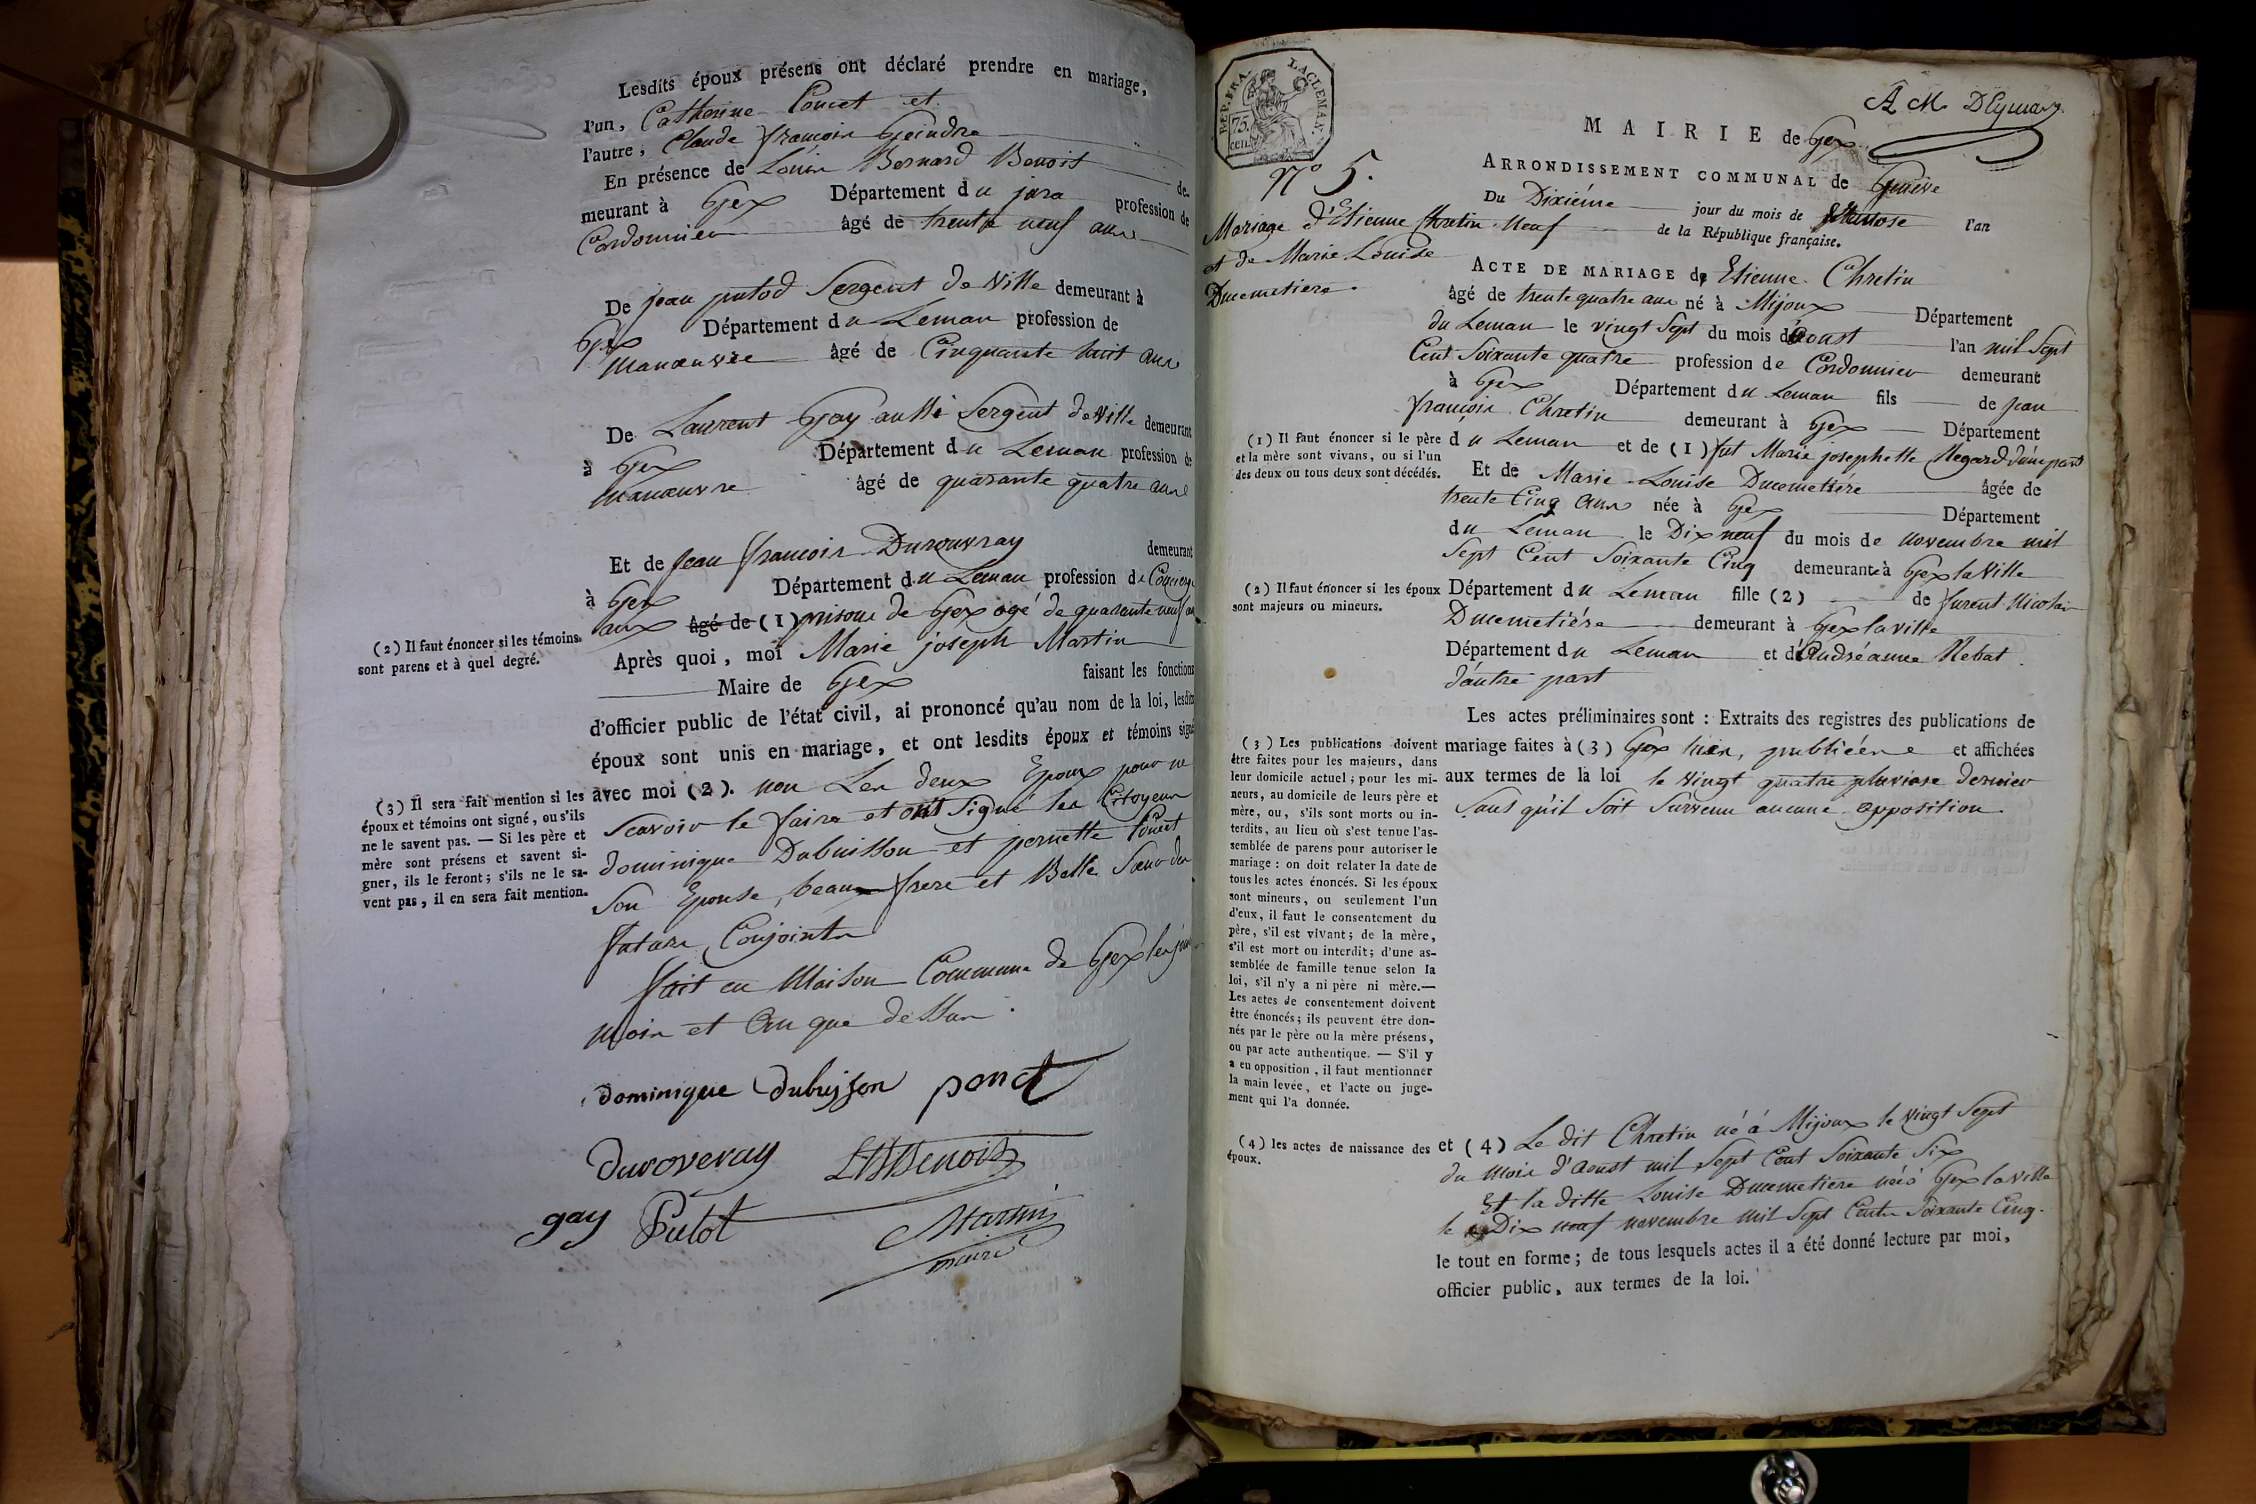 Lesdits époux présens ont déclaré prendre en mariage,
l'un, Catherine Poncet et
l'autre, Claude françois Goindre
En présence de Louis Bernard Benoit de-
meurant à Gex Département du jura profession de
Cordonnier âgé de trente neuf ans
De jean putod Sergent de Ville demeurant à
Gex Département du Leman profession de
Manœuvre âgé de Cinquante huit ans
De Laurent Gay aussi Sergent de Ville demeurant
à Gex Département du Leman profession de
Manœuvre âgé de quarante quatre ans
Et de jean françois Durouvray demeurant
à Gex Département du Leman profession de Concierge
aux âgé de (1) prisons de Gex agé de quarante neuf ans
(2) Il faut énoncer si les témoins
sont parens et à quel degré.
Après quoi, moi Marie joseph Martin
Maire de Gex faisant les fonctions
d'officier public de l'état civil, ai prononcé qu'au nom de la loi, lesdits
époux sont unis en mariage, et ont lesdits époux et témoins signé
avec moi (2). non Les deux Epoux pour ne
Scavoir le faire et ont Signé les Citoyens
dominique Dubuisson et pernette Poncet
Son Epouse, beau frere et Belle Sœur du
futur Conjoints
fait en Maison Commune de Gex les jour
Mois et An que dessus.
(3) Il sera fait mention si les
époux et témoins ont signé, ou s'ils
ne le savent pas. — Si les père et
mère sont présens et savent si-
gner, ils le feront; s'ils ne le sa-
vent pas, il en sera fait mention.
dominique Dubuisson poncet
duroveray LBBenoit
gay Putot Martin
maire
REP. FRA. LAGLEMAN.
75. cen.
A M. D'Eymar
MAIRIE de Gex
ARRONDISSEMENT COMMUNAL de Genève
N° 5.
Du Dixiéme jour du mois de Ventose l'an
Neuf de la République française.
Mariage d'Etienne Chretin
et de Marie Louise
Ducemetiere.
ACTE DE MARIAGE de Etienne Chretin
âgé de trente quatre ans né à Mijoux Département
du Leman le vingt Sept du mois d'Aoust l'an mil Sept
Cent Soixante quatre profession de Cordonnier demeurant
à Gex Département du Leman fils de jean
françois Chretin demeurant à Gex Département
du Leman et de (1) fut Marie josephette Regard d'une part
(1) Il faut énoncer si le père
et la mère sont vivans, ou si l'un
des deux ou tous deux sont décédés.
Et de Marie Louise Ducemetiere âgée de
trente Cinq Ans née à Gex Département
du Leman le Dix neuf du mois de novembre mil
Sept Cent Soixante Cinq demeurante à Gex la Ville
Département du Leman fille (2) de Nicolas
Ducemetiére demeurant à Gex la ville
Département du Leman et d'Andréanne Rebat
d'autre part
(2) Il faut énoncer si les époux
sont majeurs ou mineurs.
Les actes préliminaires sont : Extraits des registres des publications de
mariage faites à (3) Gex et affichées
aux termes de la loi le vingt quatre pluviose dernier
Sans qu'il Soit Survenu aucune opposition
(3) Les publications doivent
être faites pour les majeurs, dans
leur domicile actuel; pour les mi-
neurs, au domicile de leurs père et
mère, ou, s'ils sont morts ou in-
terdits, au lieu où s'est tenue l'as-
semblée de parens pour autoriser le
mariage : on doit relater la date de
tous les actes énoncés. Si les époux
sont mineurs, ou seulement l'un
d'eux, il faut le consentement du
père, s'il est vivant; de la mère,
s'il est mort ou interdit; d'une as-
semblée de famille tenue selon la
loi, s'il n'y a ni père ni mère.—
Les actes de consentement doivent
être énoncés; ils peuvent être don-
nés par le père ou la mère présens,
ou par acte authentique. — S'il y
a eu opposition, il faut mentionner
la main levée, et l'acte ou juge-
ment qui l'a donnée.
(4) les actes de naissance des
époux.
et (4) Le dit Chretin né à Mijoux le vingt Sept
du mois d'aoust mil Sept Cent Soixante Six
Et la ditte Louise Ducemetiere née à Gex la ville
le Dix neuf novembre mil Sept Cent Soixante Cinq.
le tout en forme; de tous lesquels actes il a été donné lecture par moi,
officier public, aux termes de la loi.